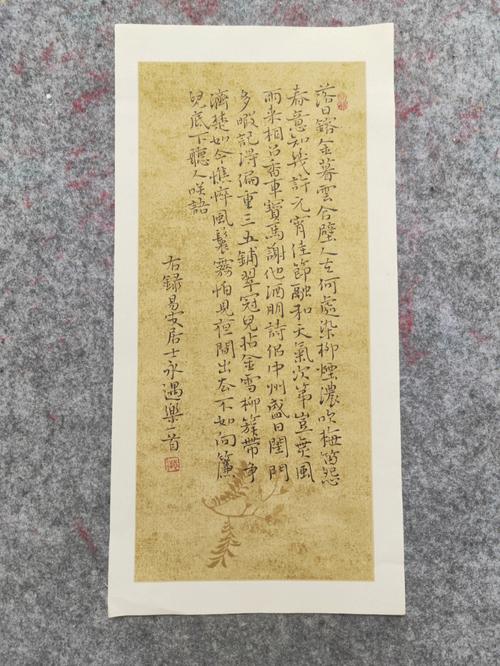 落日鎔金暮雲合璧人在何處染柳煙濃吹梅笛怨
春意知幾許元宵佳節融和天氣次第豈無風
雨來相召香車寶馬謝他酒朋詩侶中州盛日閨門
多暇記得偏重三五鋪翠冠兒拈金雪柳簇帶爭
濟楚如今憔悴風鬟霧怕見夜間出去不如向簾
兒底下聽人咲語
右録易安居士永遇樂一首